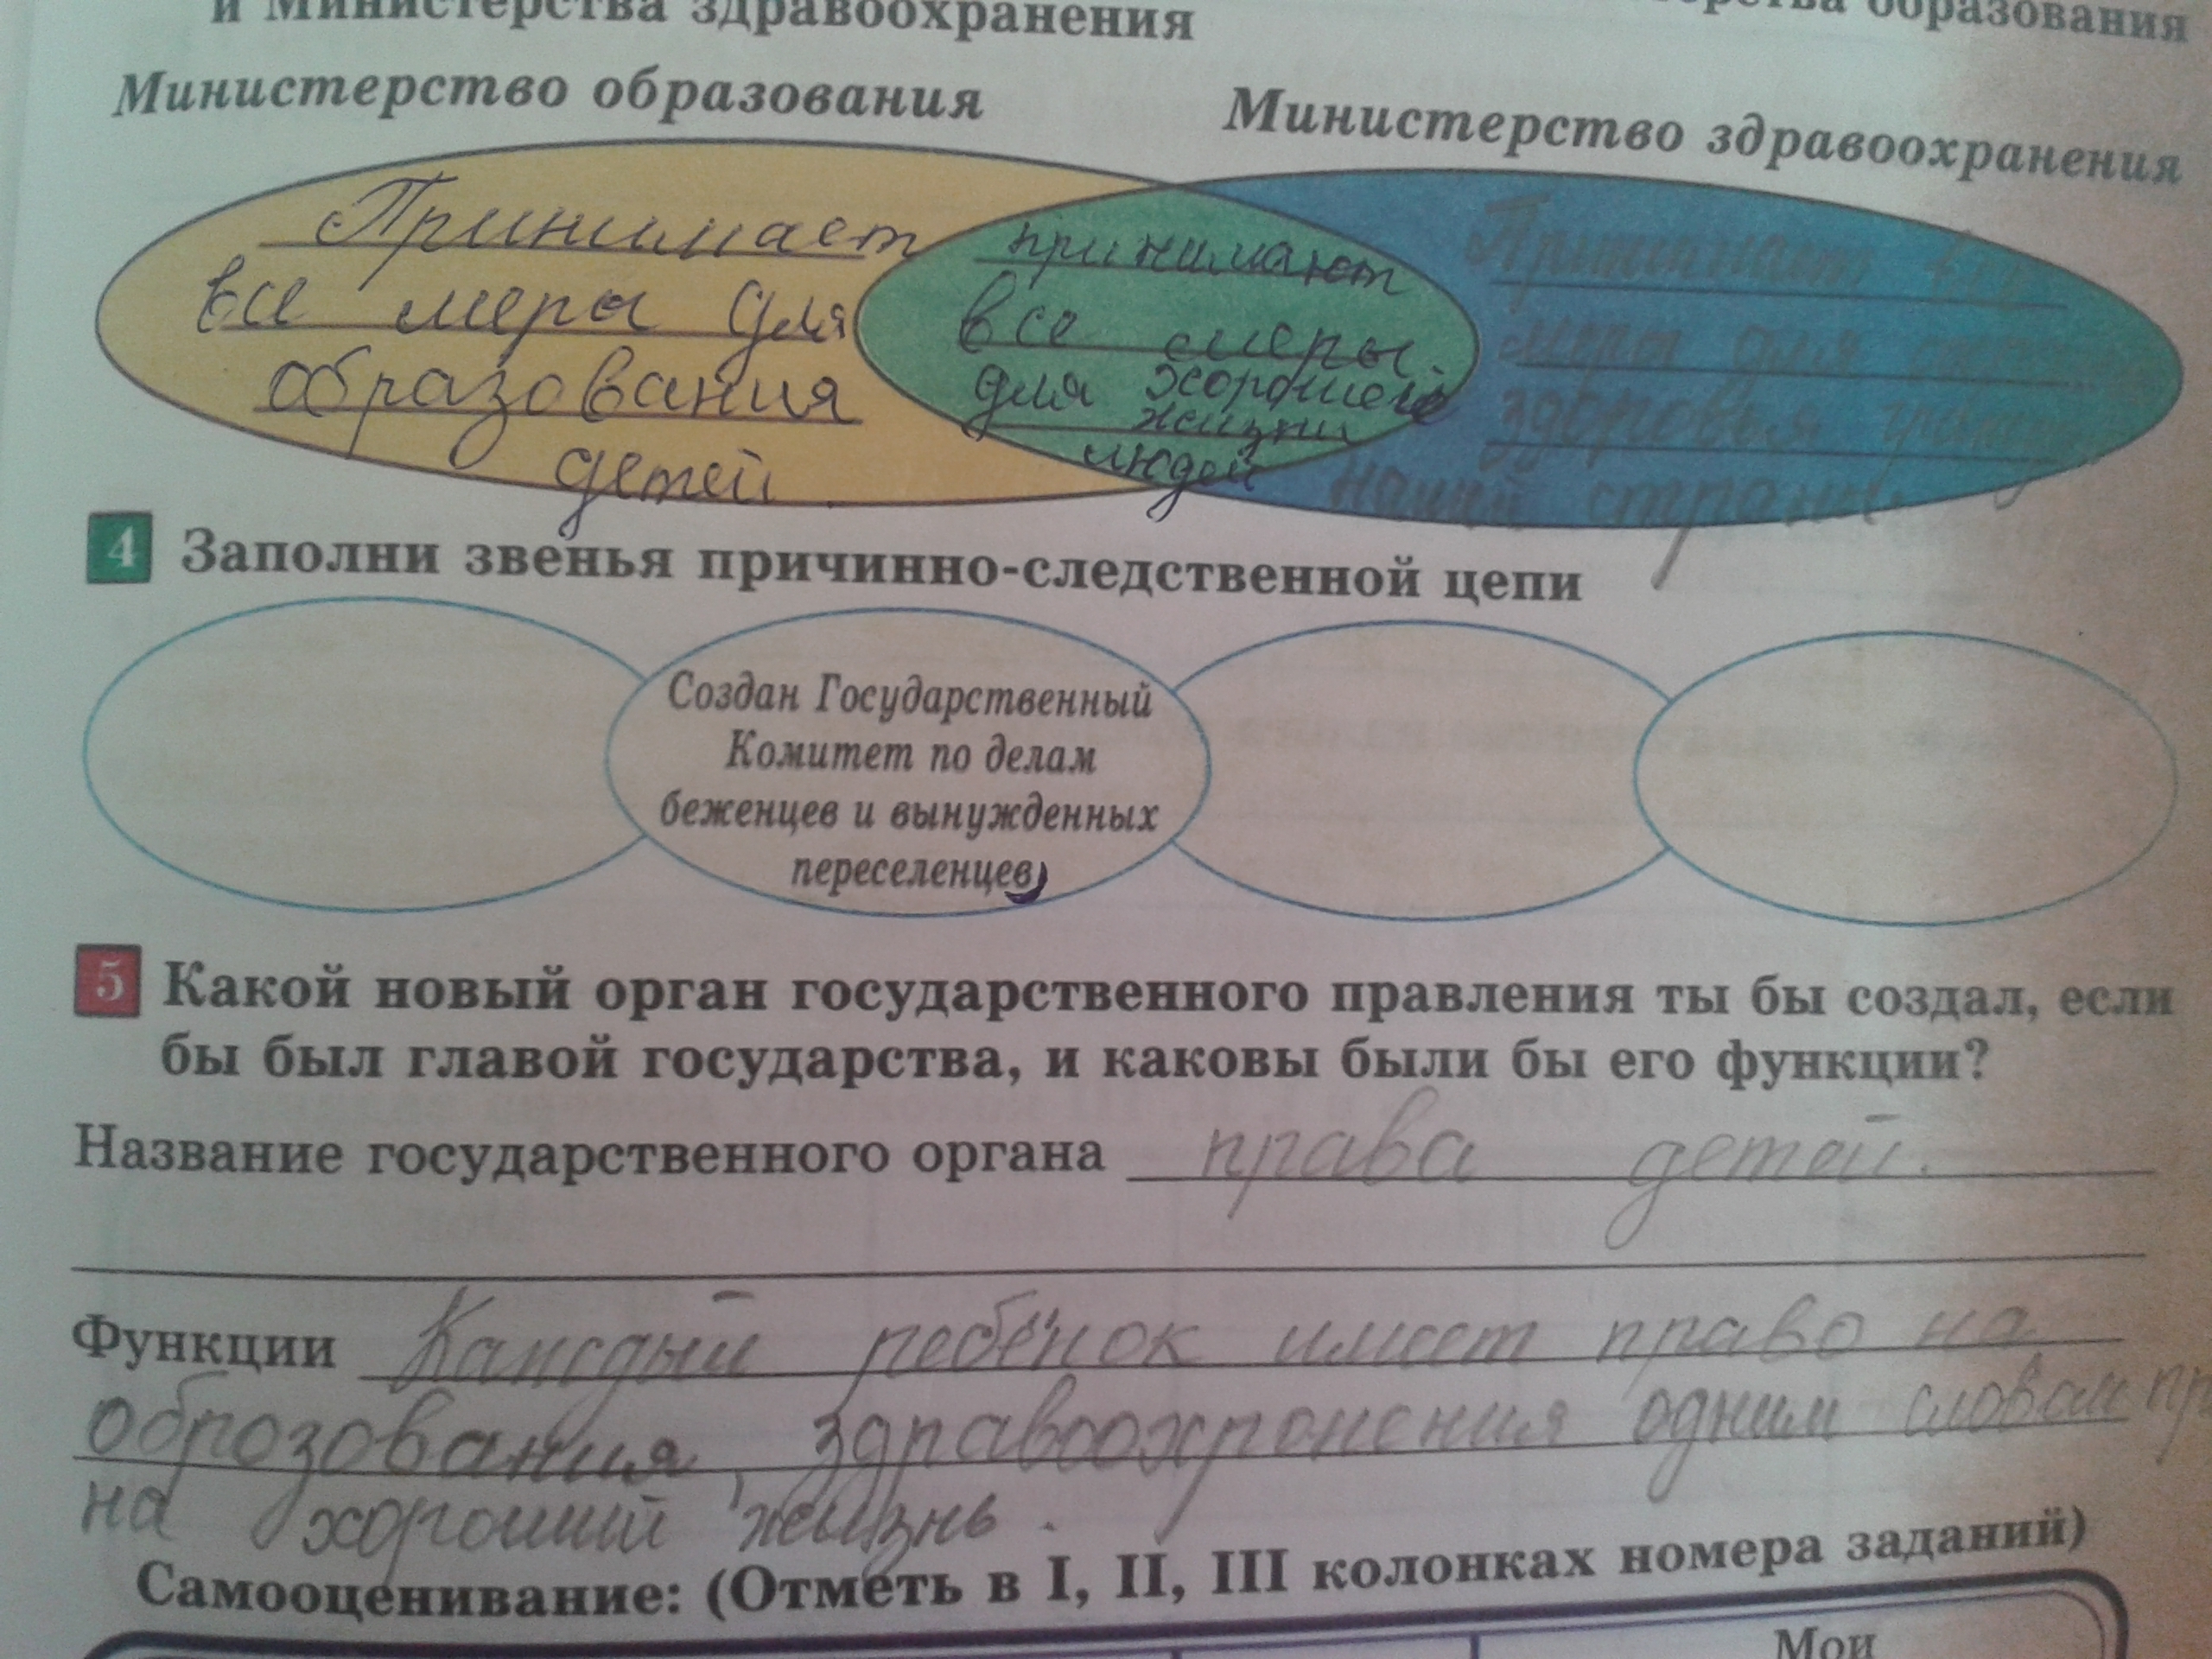 и Министерства здравоохранения
образования
Министерство образования
Министерство здравоохранения
Принимает
все меры для
образования
детей
принимают
все меры
для хорошего
жизни
людей
Принимает все
меры для
здоровья
нашей страны.
4 Заполни звенья причинно-следственной цепи
Создан Государственный
Комитет по делам
беженцев и вынужденных
переселенцев
5 Какой новый орган государственного правления ты бы создал, если
бы был главой государства, и каковы были бы его функции?
Название государственного органа права детей.
Функции Каждый ребёнок имеет право на
оброзования, здравоохронения одним словом пр
на хороший жизнь.
Самооценивание: (Отметь в I, II, III колонках номера заданий)
Мои